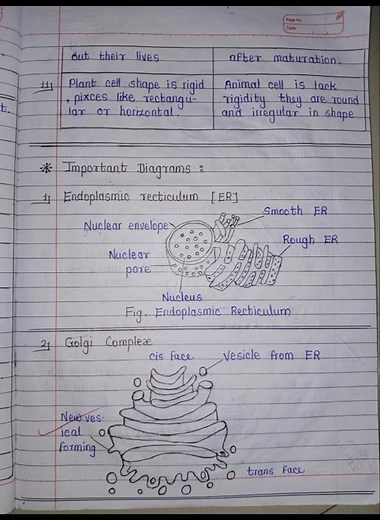 Page No.
Date
out their lives
after maturation.
11)
Plant cell shape is rigid
Animal cell is lack
, pixces like rectangu-
rigidity they are round
lar or horizontal.
and irregular in shape
t.
* Important Diagrams :
1) Endoplasmic recticulum [ER]
Smooth ER
Nuclear envelope
Rough ER
Nuclear
pore
Nucleus
Fig. Endoplasmic Recticulum
2) Golgi Complex
cis face
Vesicle from ER
New ves-
ical
forming
trans face